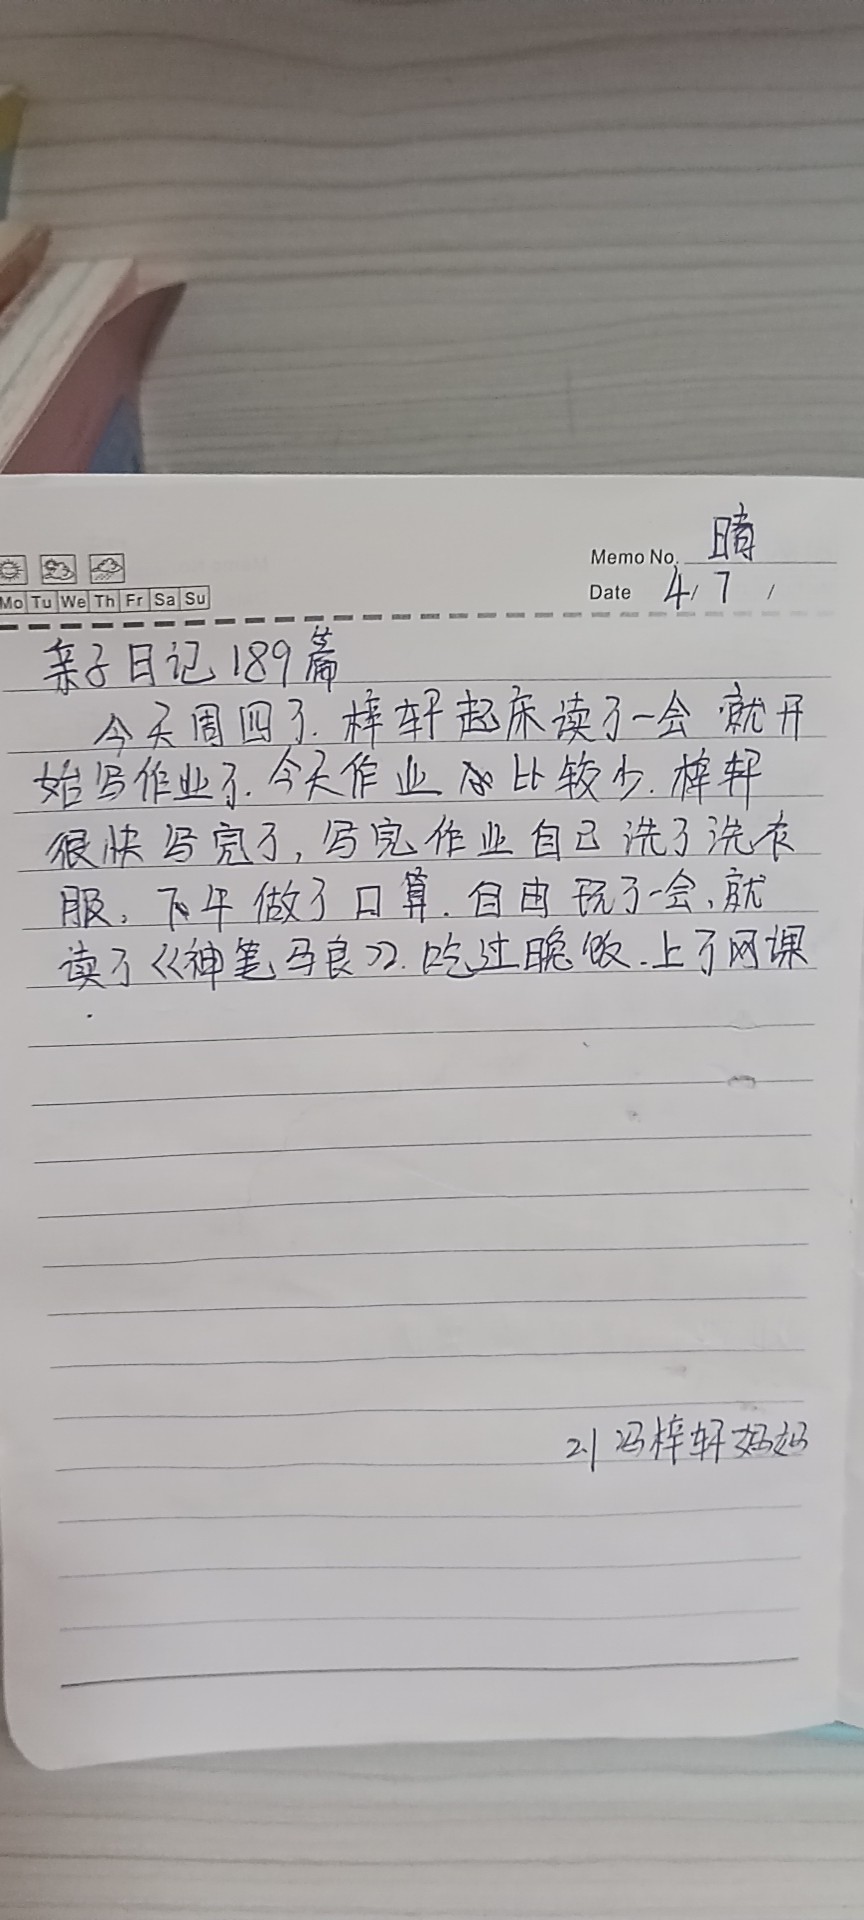 Memo No. 晴
Mo Tu We Th Fr Sa Su
Date 4/7/
亲子日记189篇
今天周四了.梓轩起床读了一会 就开
始写作业了.今天作业 比较少.梓轩
很快写完了,写完作业自己洗了洗衣
服,下午做了口算.自由玩了一会、就
读了《神笔马良》.吃过晚饭.上了网课
.
2.1 冯梓轩妈妈